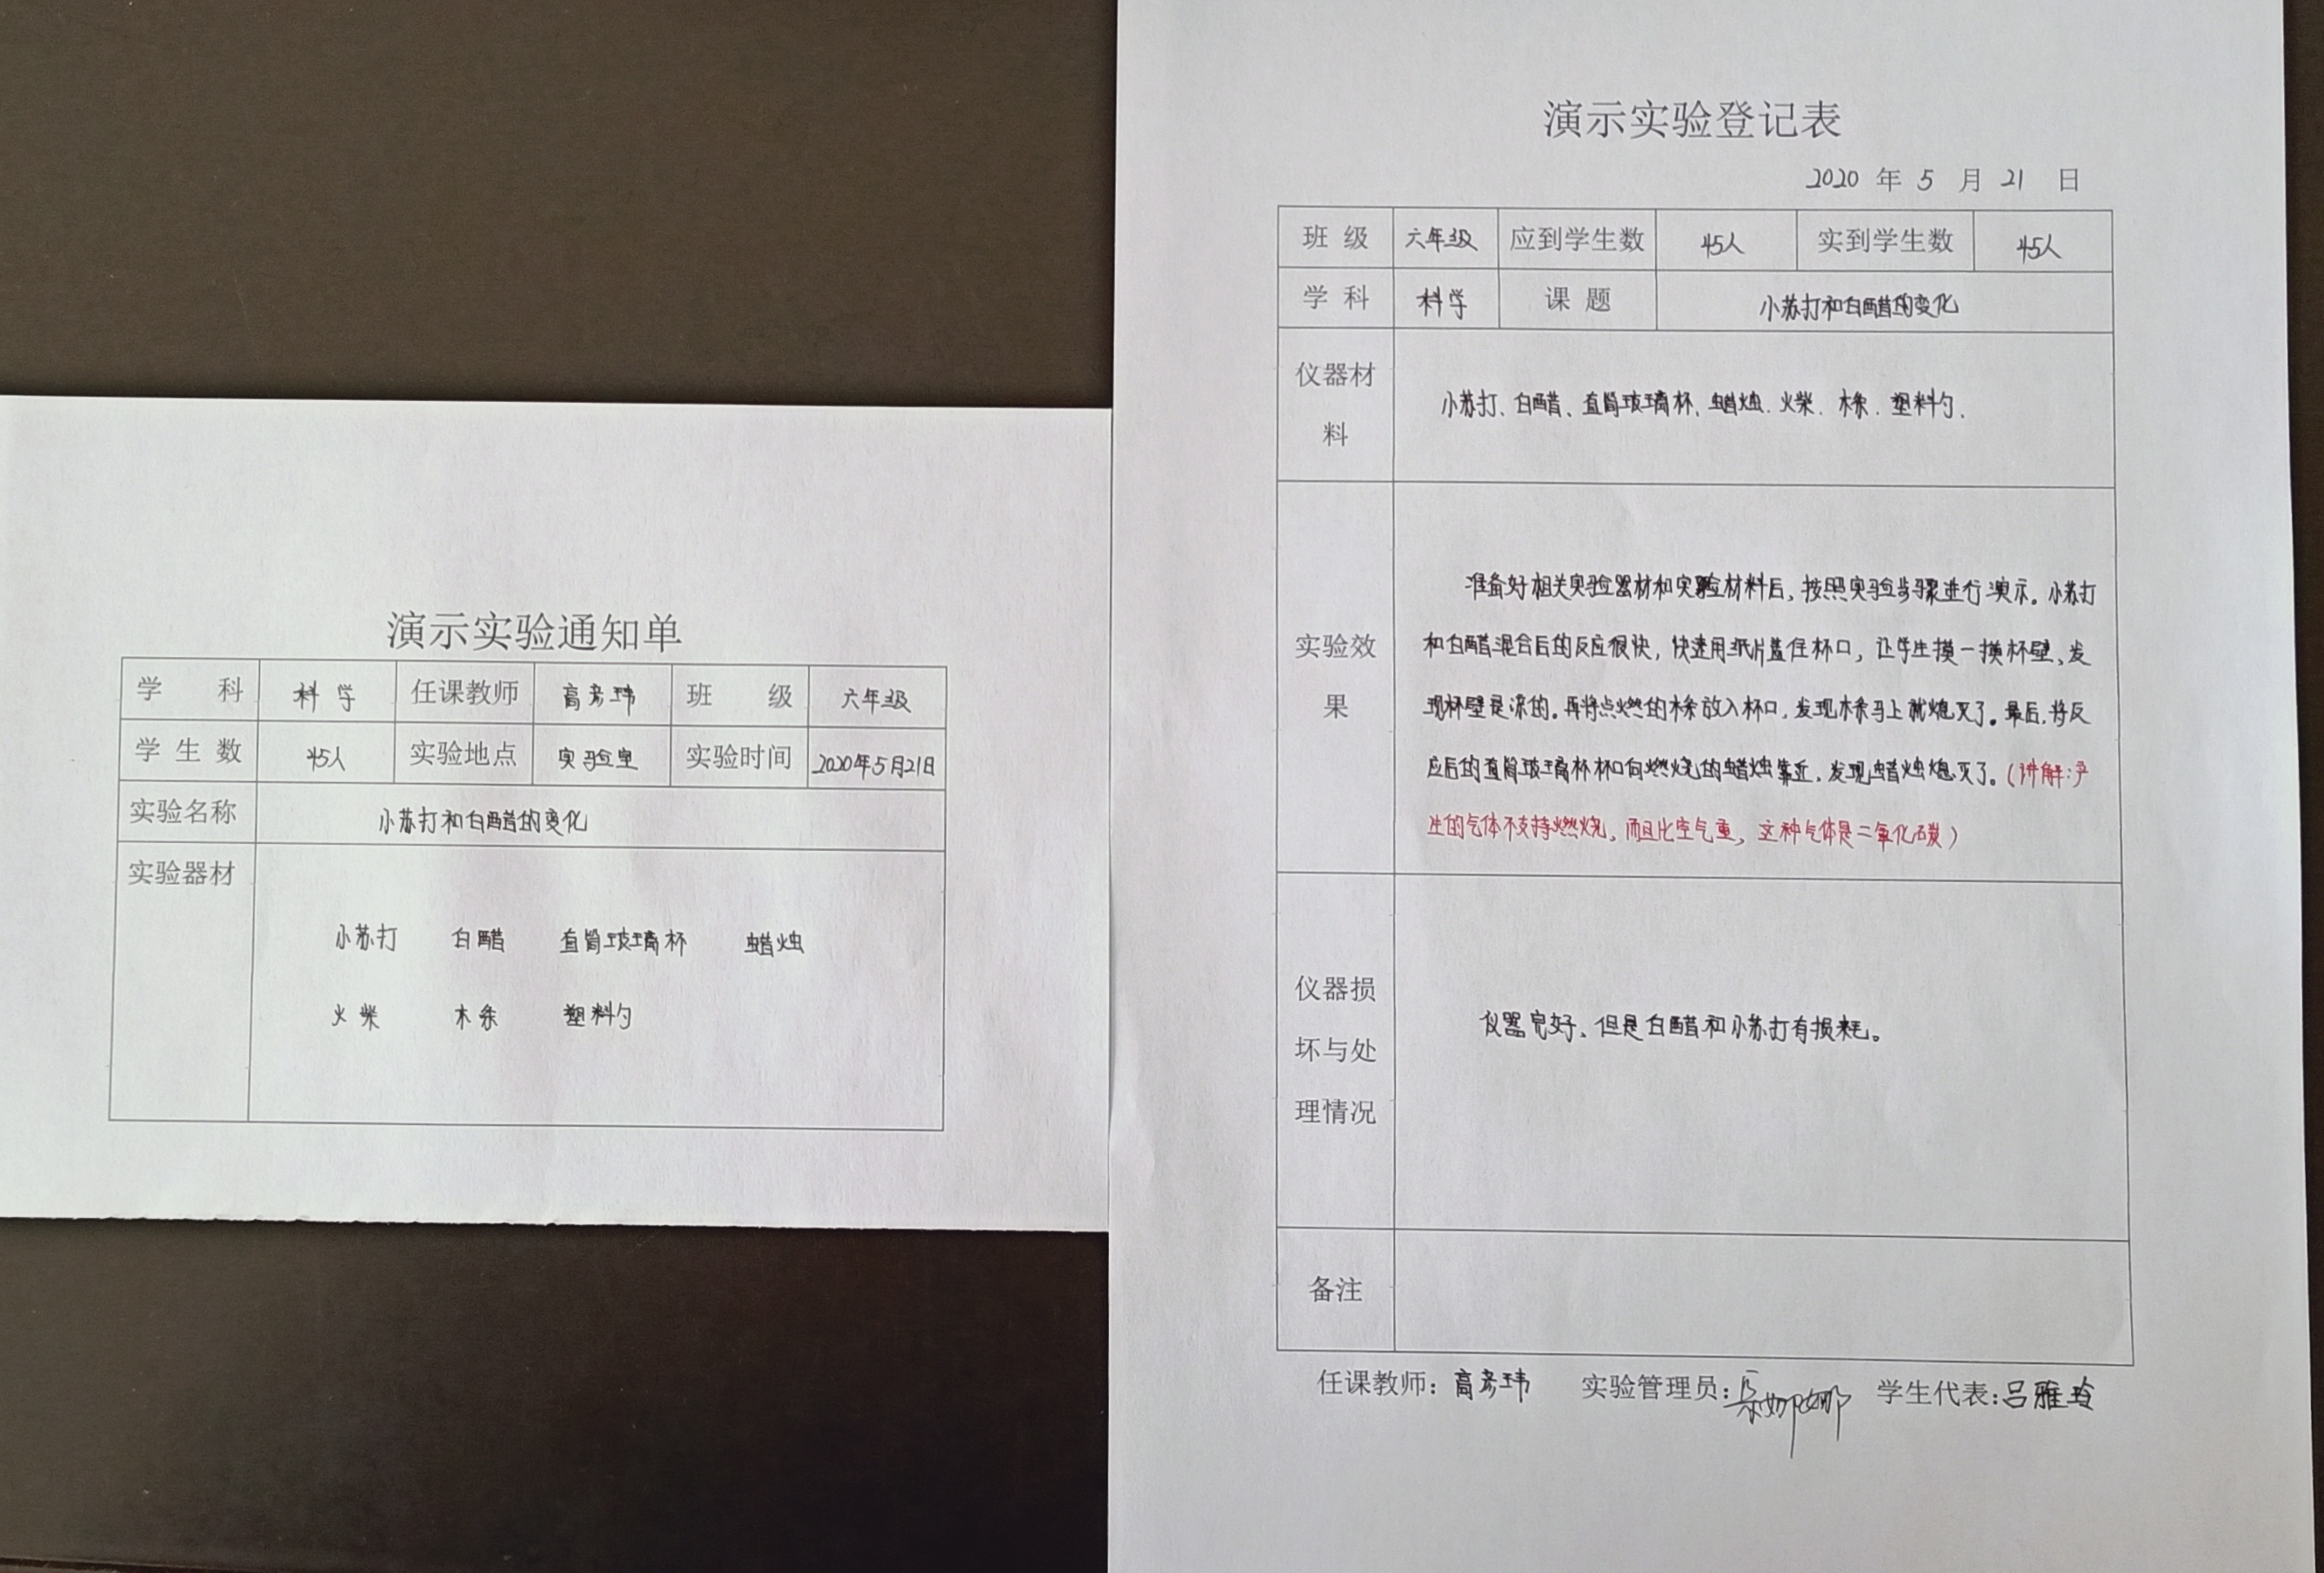 演示实验通知单
学 科 科学 任课教师 高彦玮 班 级 六年级
学生数 45人 实验地点 实验室 实验时间 2020年5月21日
实验名称 小苏打和白醋的变化
实验器材
小苏打 白醋 直筒玻璃杯 蜡烛
火柴 木条 塑料勺
演示实验登记表
2020 年 5 月 21 日
班 级 六年级 应到学生数 45人 实到学生数 45人
学 科 科学 课 题 小苏打和白醋的变化
仪器材
料
小苏打、白醋、直筒玻璃杯、蜡烛、火柴、木条、塑料勺.
实验效
果
准备好相关实验器材和实验材料后，按照实验步骤进行演示。小苏打
和白醋混合后的反应很快，快速用纸片盖住杯口，让学生摸一摸杯壁、发
现杯壁是凉的。再将点燃的木条放入杯口，发现木条马上就熄灭了。最后，将反
应后的直筒玻璃杯杯口向燃烧的蜡烛靠近、发现蜡烛熄灭了。（讲解：产
生的气体不支持燃烧，而且比空气重，这种气体是二氧化碳）
仪器损
坏与处
理情况
仪器完好、但是白醋和小苏打有损耗。
备注
任课教师：高彦玮 实验管理员： 学生代表：吕雅玲